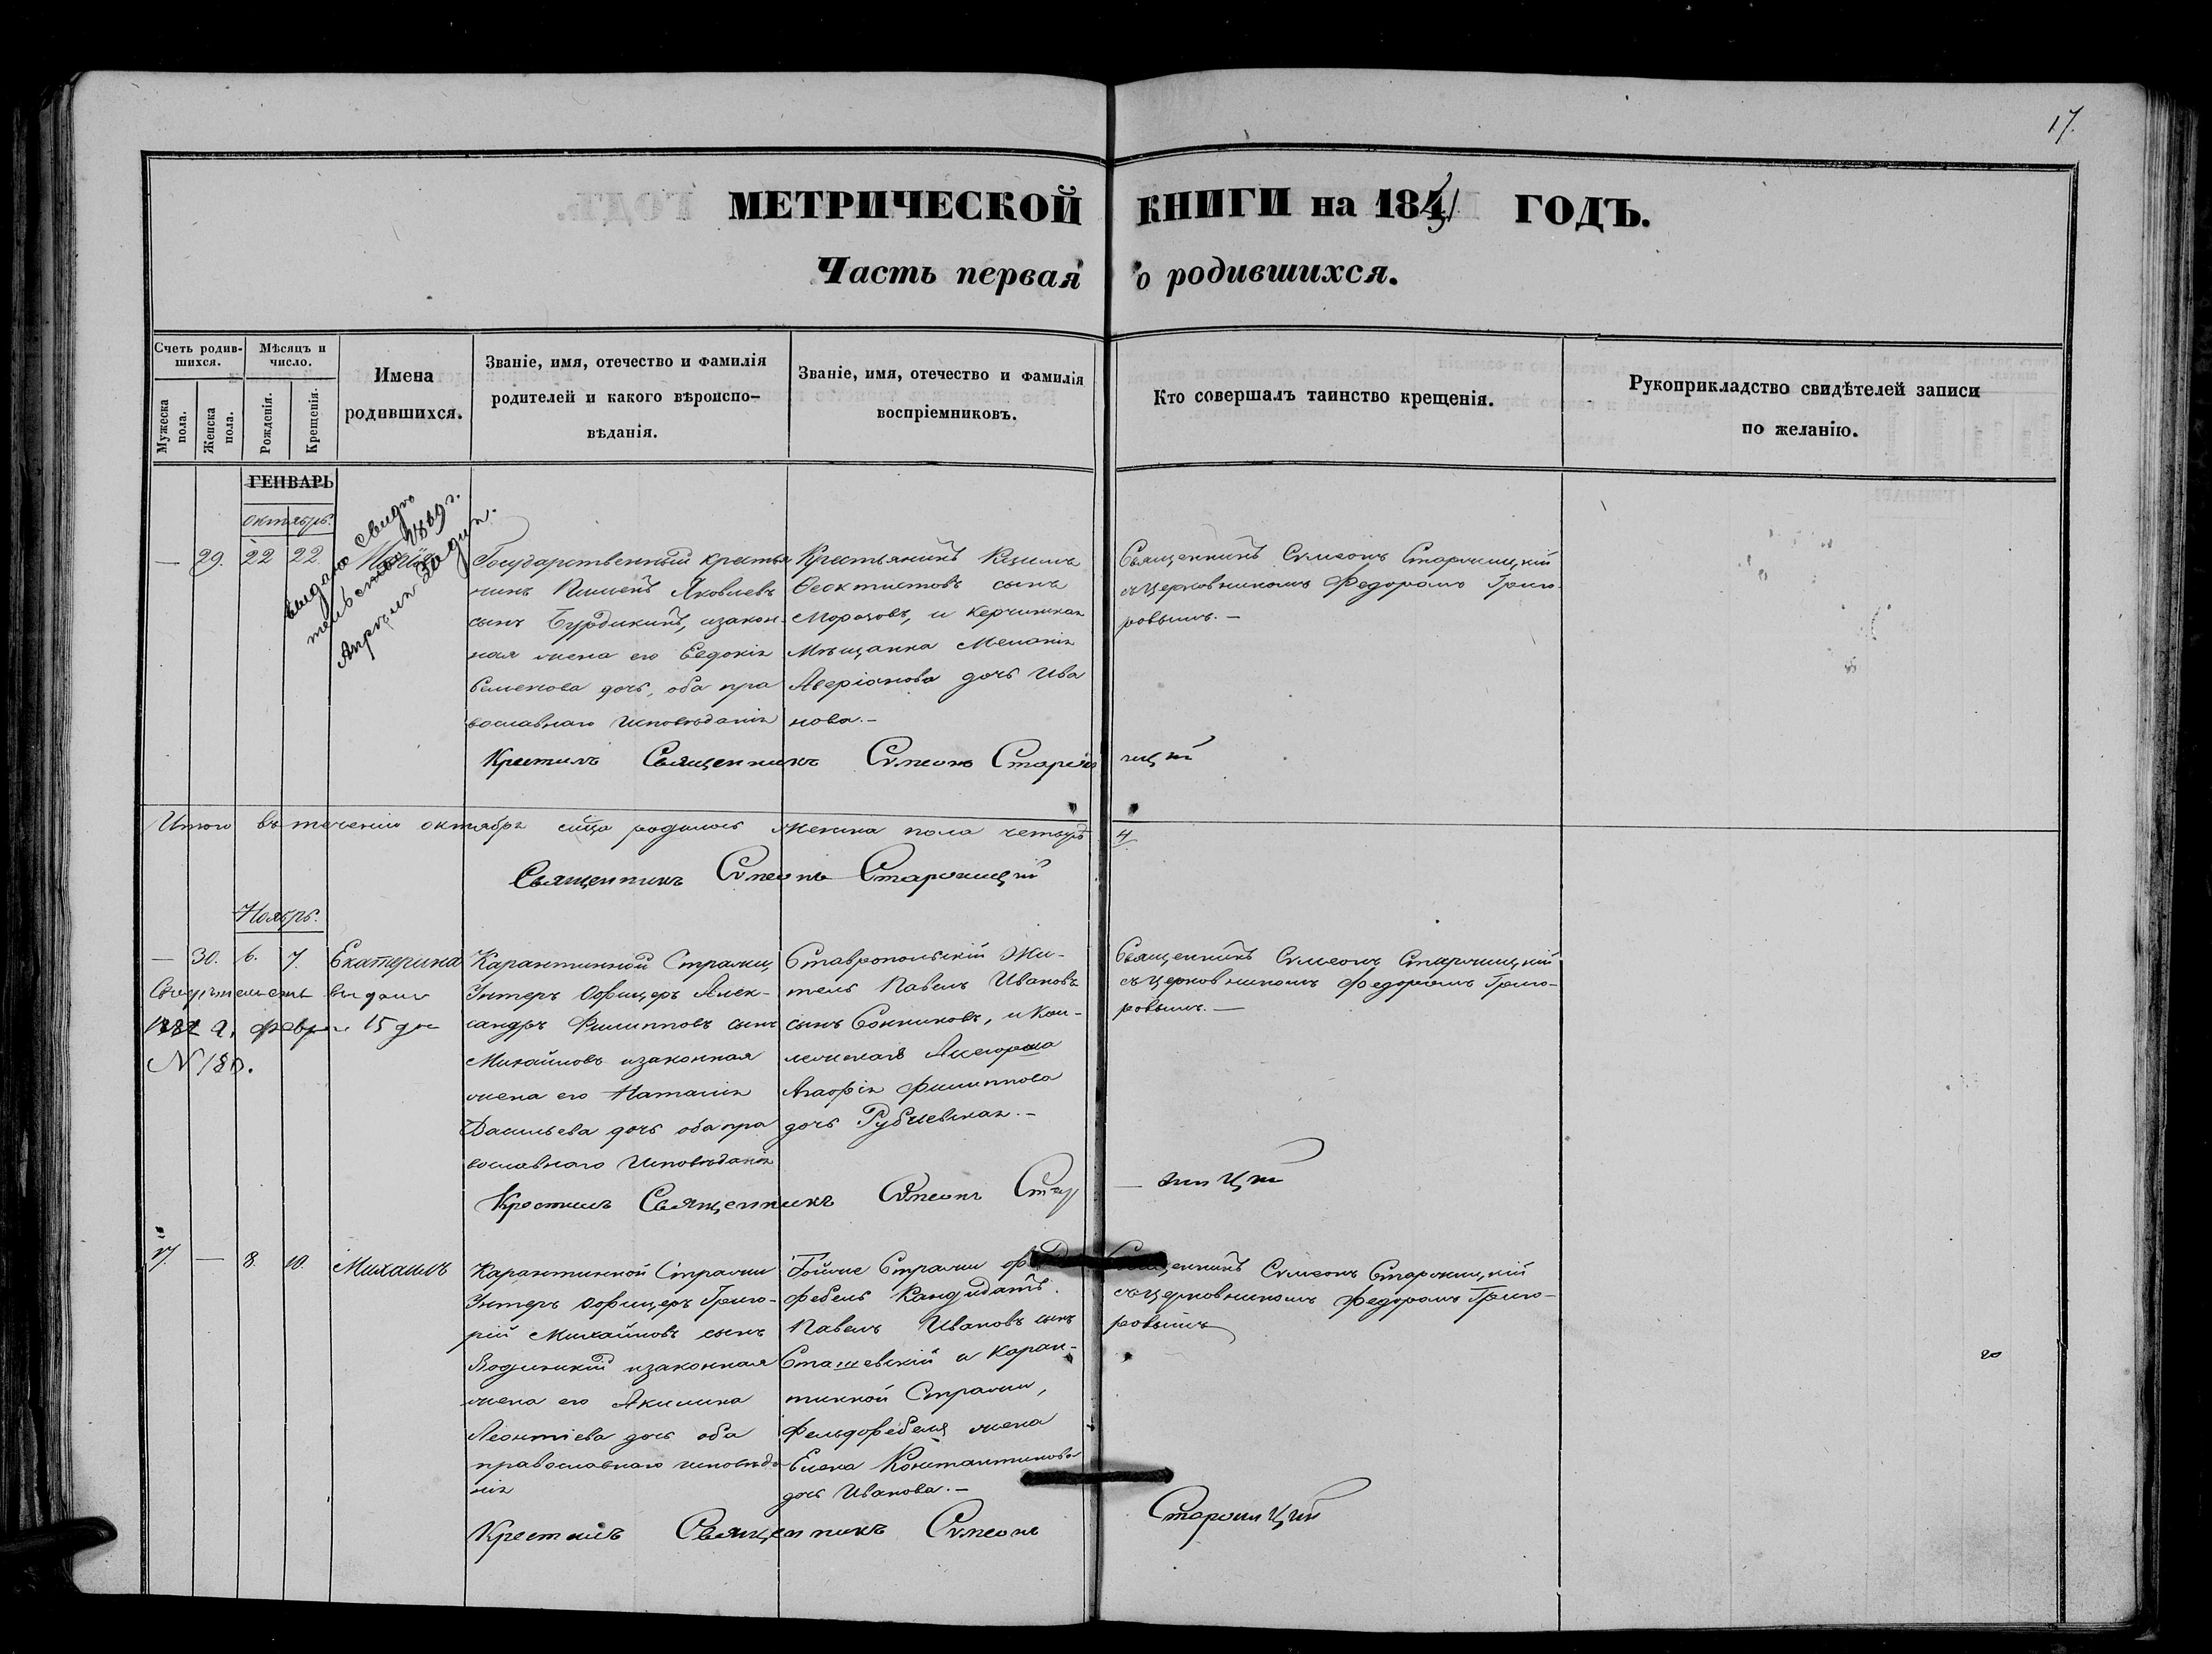 17.
МЕТРИЧЕСКОЙ КНИГИ на 1841 ГОДЪ.
Часть первая о родившихся.
Счетъ родив-
шихся.
Мужеска
пола.
Женска
пола.
Мѣсяцъ и
число.
Рожденія.
Крещенія.
Имена
родившихся.
Званіе, имя, отечество и фамилія
родителей и какого вѣроиспо-
вѣданія.
Званіе, имя, отечество и фамилія
воспріемниковъ.
Кто совершалъ таинство крещенія.
Рукоприкладство свидѣтелей записи
по желанію.
ГЕНВАРЬ
октябрь.
— 29. 22 22.
выдано свидѣ
тельство 1869 г.
Апрѣля
Государственный крестья
нинъ Пименъ Яковлевъ
сынъ Бурдикинъ, изакон-
ная жена его Евдокія
Семенова дочь, оба пра
вославнаго исповѣданія
Крестьянинъ
Феоктистовъ сынъ
Морозовъ, и Керчинская
Мѣщанка Меланія
Аверіанова дочь Ива
нова.—
Священникъ Сѵмеонъ Старжицкій
съ Церковникомъ Федоромъ Григо-
ровымъ.—
Крестилъ Священникъ Сѵмеонъ Старжицкій
Итого въ теченіи октября сего родилось женска пола четыре 4
Священникъ Сѵмеонъ Старжицкій
Ноябрь.
— 30. 6. 7. Екатерина
Свидѣтельство выдано
1882 г. февраля 15 дня
N 180.
Карантинной Стражи,
Унтеръ Офицеръ Алек-
сандръ Филипповъ сынъ
Михайловъ изаконная
жена его Наталія
Васильева дочь оба пра
вославнаго исповѣданія
Ставропольскій Жи-
тель Павелъ Ивановъ
сынъ Сонниковъ, и Кол-
лежскаго
Агафія Филиппова
дочь Рублевская.—
Священникъ Сѵмеонъ Старжицкій
съ Церковникомъ Федоромъ Григо-
ровымъ.—
Крестилъ Священникъ Сѵмеонъ Стар — жицкій
17. — 8. 10. Михаилъ
Карантинной Стражи
Унтеръ Офицеръ Григо-
рій Михайловъ сынъ
изаконная
жена его Акилина
Леонтіева дочь оба
православнаго исповѣда
нія
Тойже Стражи
фебель Кандидатъ.
Павелъ Ивановъ сынъ
Сташевскій и Каран-
тинной Стражи,
Фельдфебеля жена
Елена Константинова
дочь Иванова.—
Священникъ Сѵмеонъ Старжицкій
съ Церковникомъ Федоромъ Григо-
ровымъ
Крестилъ Священникъ Сѵмеонъ Старжицкій